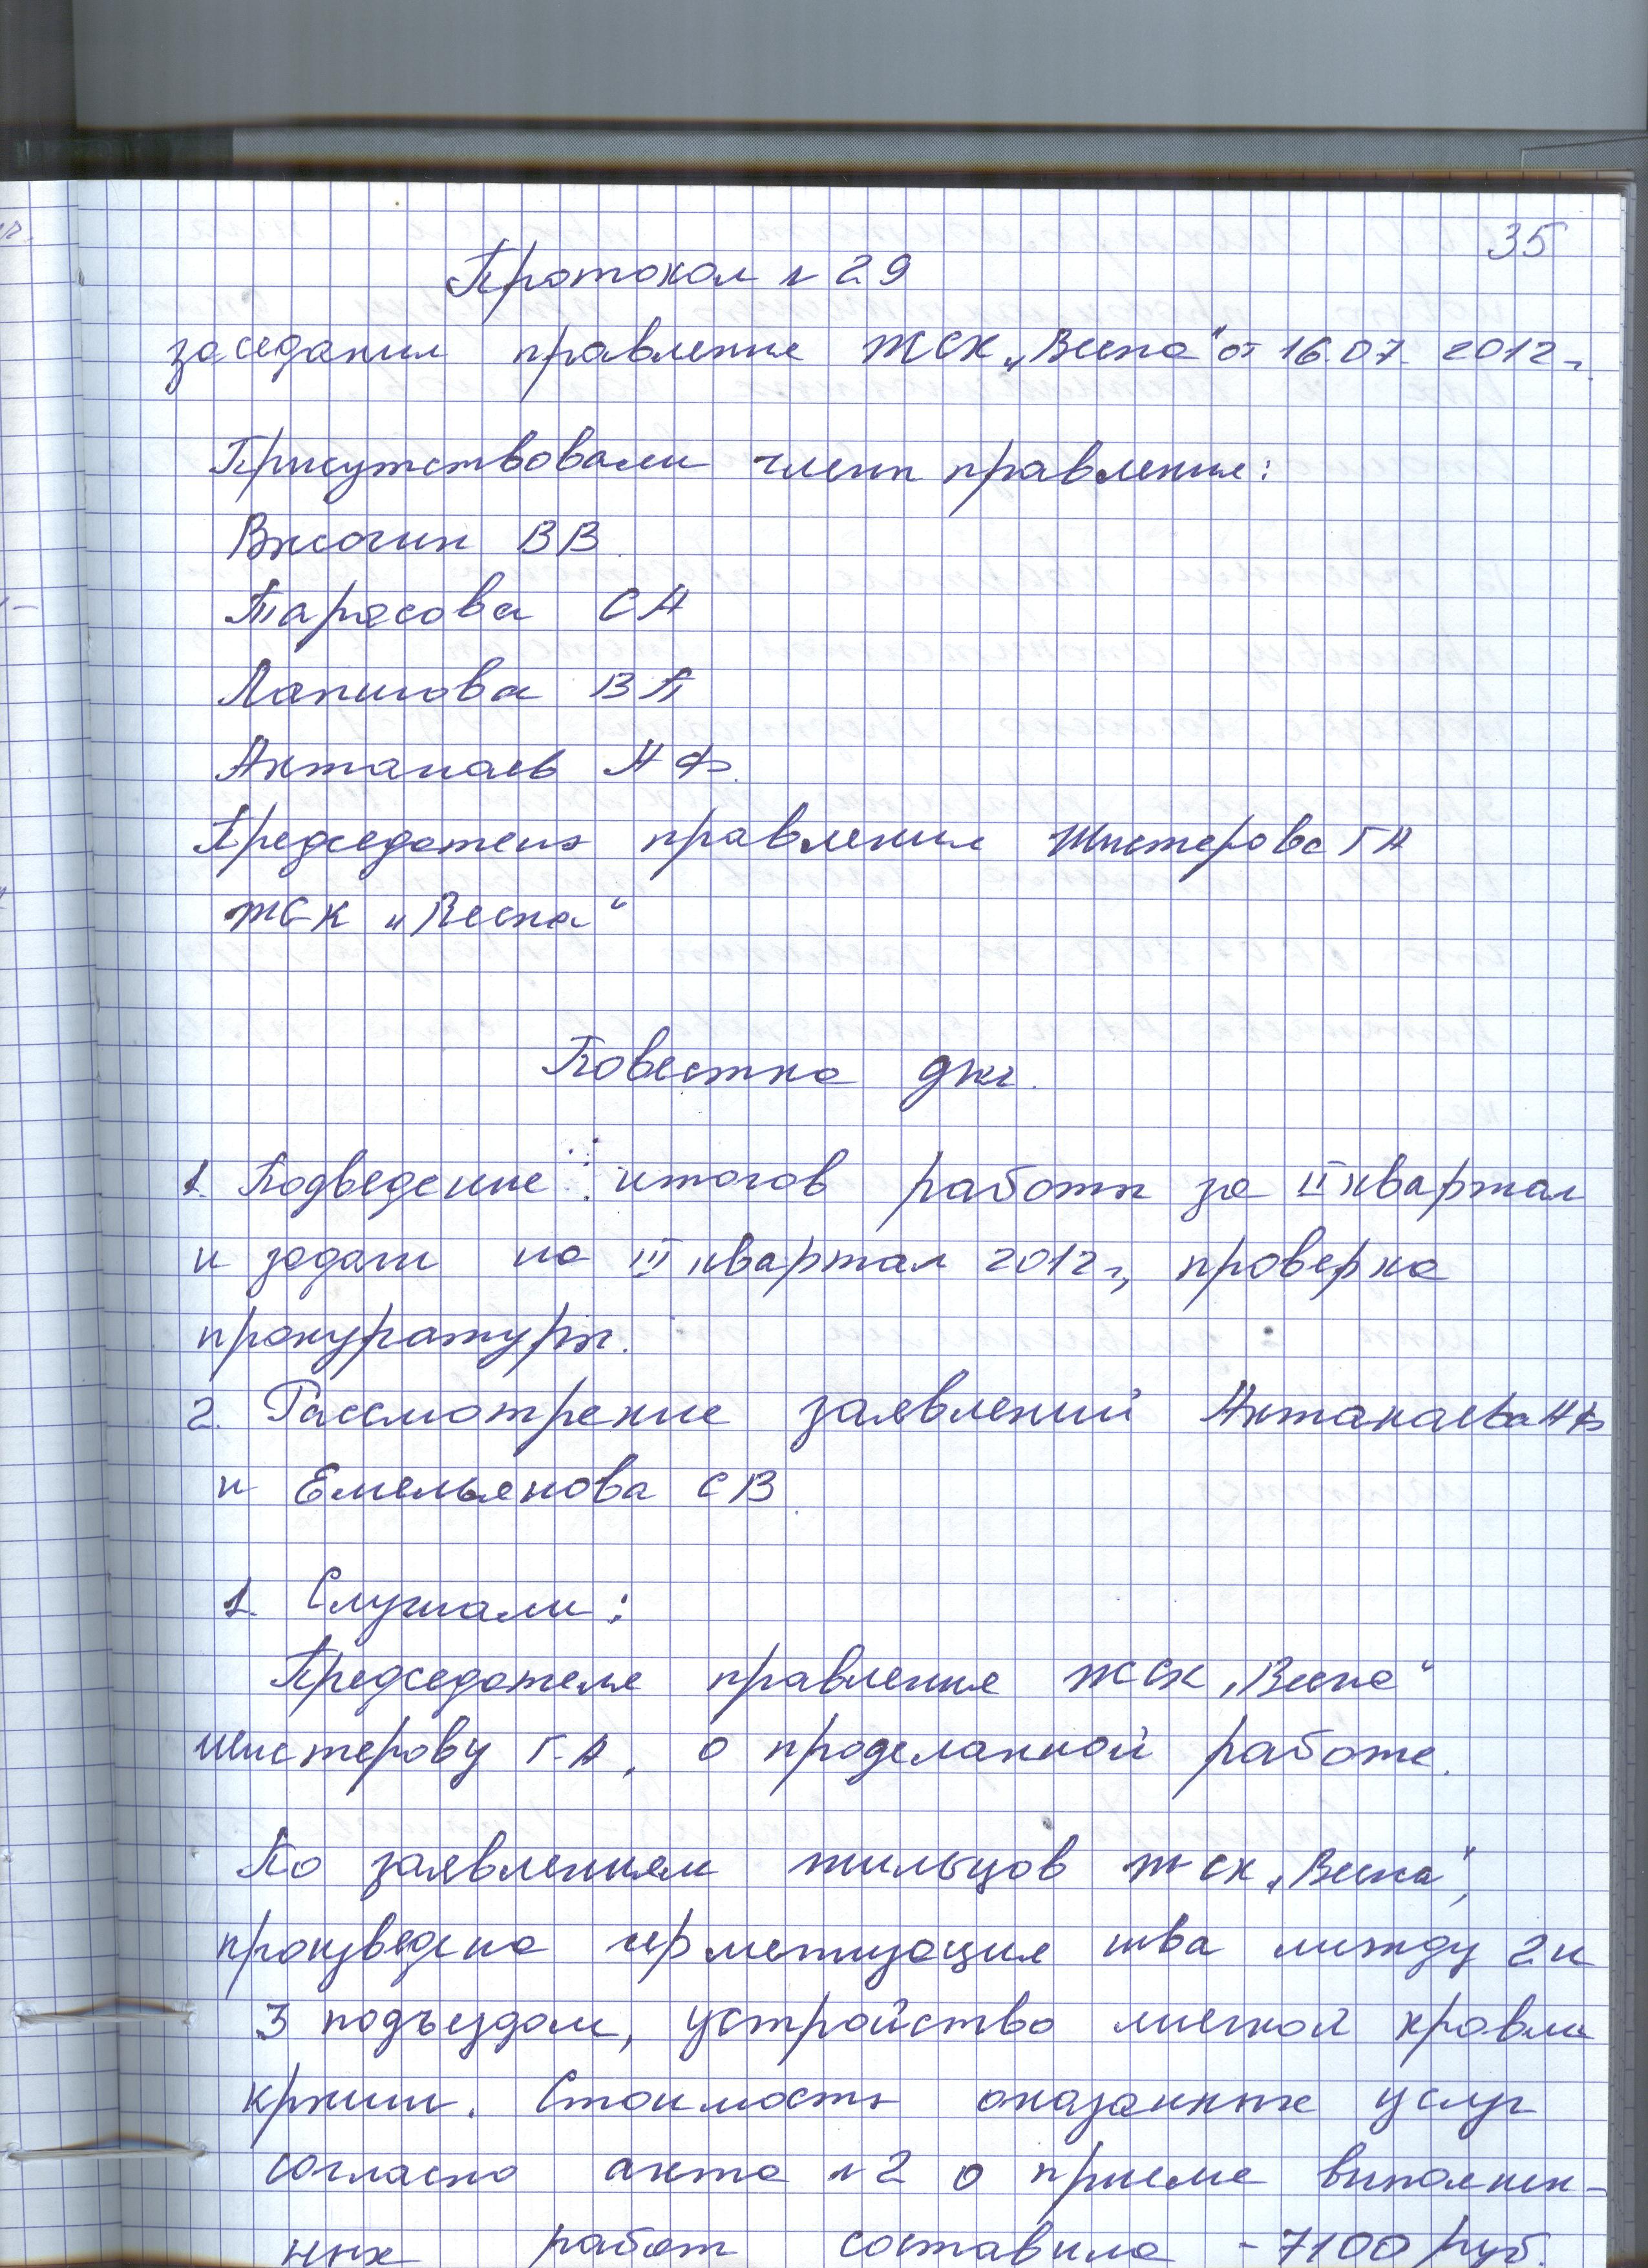 35
Протокол № 29
заседания правления ЖСК „Весна“ от 16.07. 2012г.
Присутствовали члены правления:
Высочин ВВ.
Тарасова СА
Лапшова ВП
Актанаев АФ.
Председатель правления Шистерова ГА
ЖСК „Весна“
Повестка дня.
1. Подведение итогов работы за II квартал
и задачи на III квартал 2012г, проверка
прокуратуры.
2. Рассмотрение заявлений Актанаева АФ
и Емельянова СВ.
1. Слушали:
Председателя правления ЖСК „Весна“
Шистерову Г.А. о проделанной работе.
По заявлениям жильцов ЖСК „Весна“,
произведена герметизация шва между 2 и
3 подъездом, устройство мягкой кровли
крыши. Стоимость оказанных услуг
согласно акта № 2 о приеме выполнен-
ных работ составила - 7100 руб.